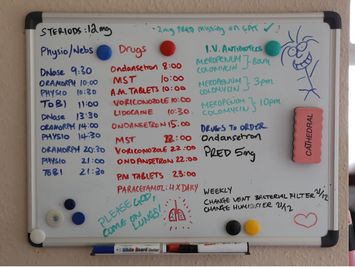 STERIODS: 12mg
Physio/Nebs
DNase 9:30
ORAMORPH 10:00
PHYSIO 10:30
TOBI 11:00
DNase 13:30
ORAMORPH 14:00
PHYSIO 14:30
ORAMORPH 20:30
PHYSIO 21:00
TOBI 21:30
Drugs
Ondansetron 8:00
MST 10:00
A.M. TABLETS 10:00
VORICONOZOLE 10:00
LIDOCAINE 10:30
ONDANSETRON 15:00
MST 22:00
VORICONOZOLE 22:00
ONDANSETRON 22:00
PM TABLETS 23:00
PARACETAMOL: 4 X DAILY
PLEASE GOD,
COME ON
LUNGS!
I.V. ANTIBIOTICS
MEROPENUM
COLOMYCIN
8am
MEROPENUM
COLOMYCIN
3pm
MEROPENUM
COLOMYCIN
10pm
DRUGS TO ORDER
Ondansetron
PRED 5mg
CATHEDRAL
WEEKLY
CHANGE VENT BACTERIAL FILTER 21/12
CHANGE HUMIDIFIER 21/12